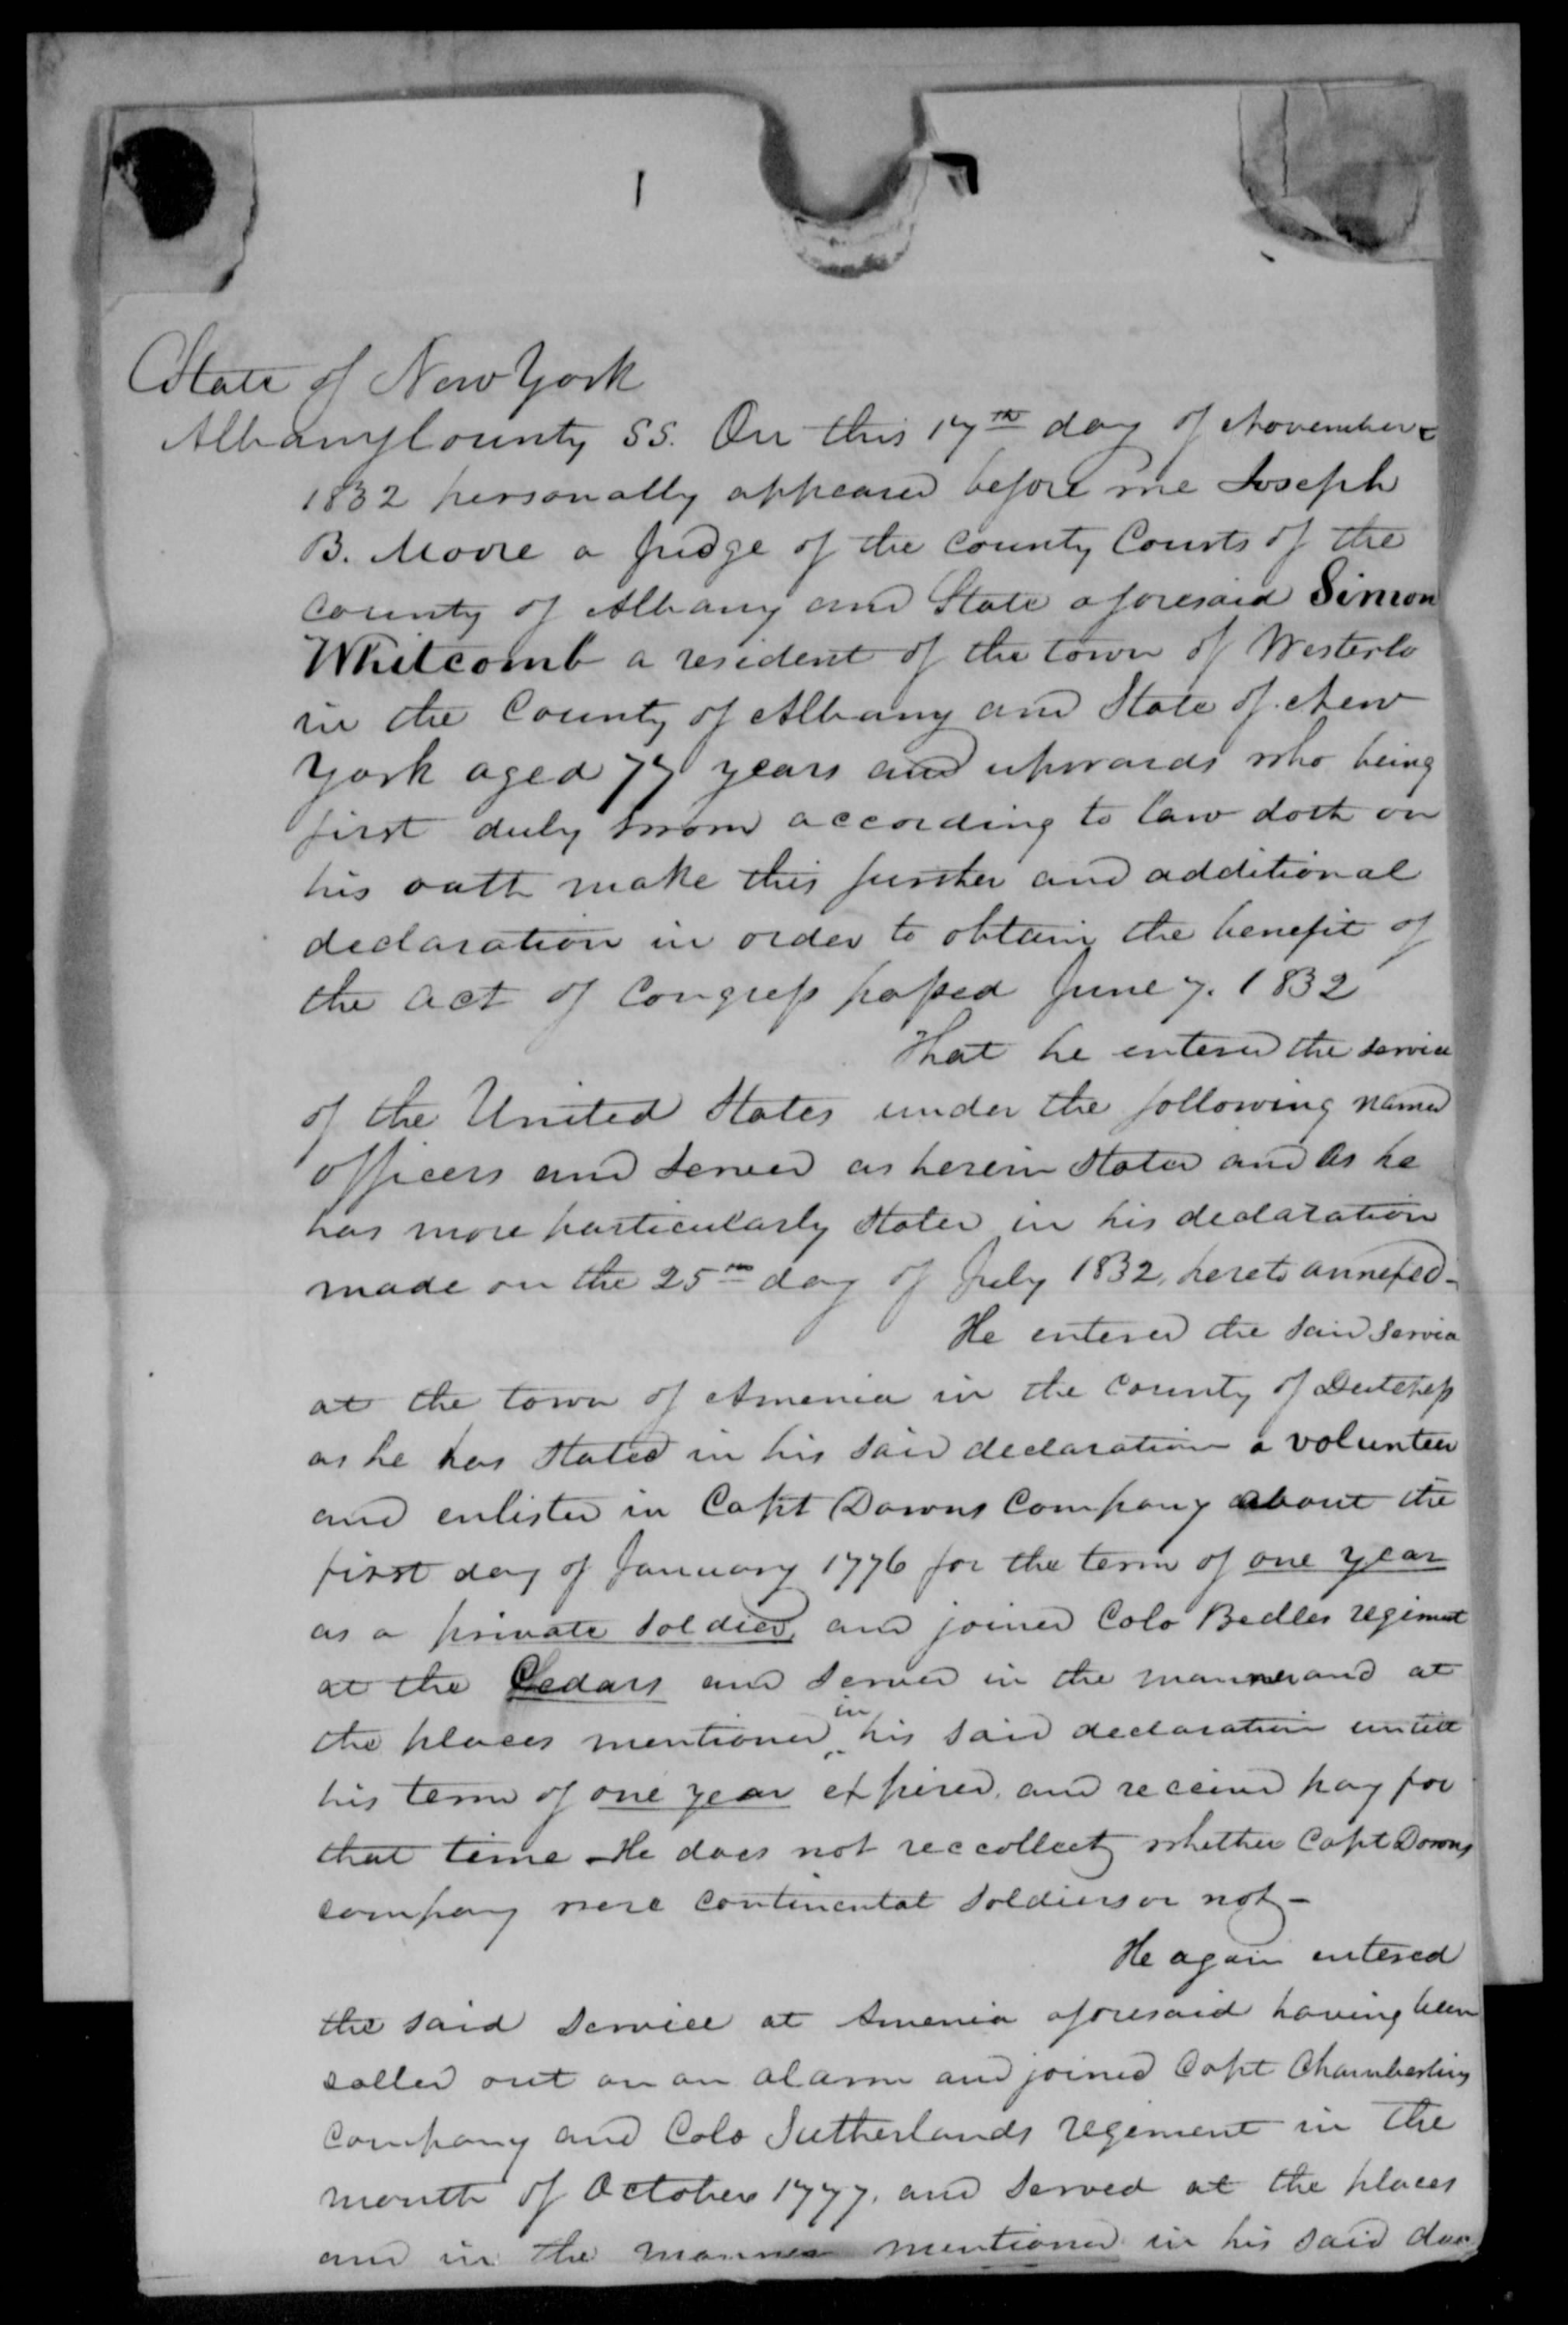 State of New York
Albany County SS. On this 17th day of November
1832 personally appeared before me Joseph
B. Moore a judge of the County Courts of the
County of Albany and State aforesaid Simon
Whitcomb a resident of the town of Westerlo
in the County of Albany and State of New
York aged 77 years and upwards who being
first duly sworn according to law doth on
his oath make this further and additional
declaration in order to obtain the benefit of
the act of Congress passed June 7. 1832
That he entered the service
of the United States under the following named
officers and served as herein stated and as he
has more particularly stated in his declaration
made on the 25th day of July 1832, hereto annexed-
He entered the said service
at the town of Amenia in the County of Dutchess
as he has stated in his said declaration a volunteer
and enlisted in Capt Downs Company about the
first day of January 1776 for the term of one year
as a private soldier, and joined Colo Bedles regiment
at the Cedars and served in the manner and at
the places mentioned in his said declaration untill
his term of one year expired, and received pay for
that time - He does not reccollect whether Capt Downs
company were continental soldiers or not -
He again entered
the said service at Amenia aforesaid having been
called out on an alarm and joined Capt Chamberlins
Company and Colo Sutherlands regiment in the
month of October 1777, and served at the places
and in the manner mentioned in his said dec